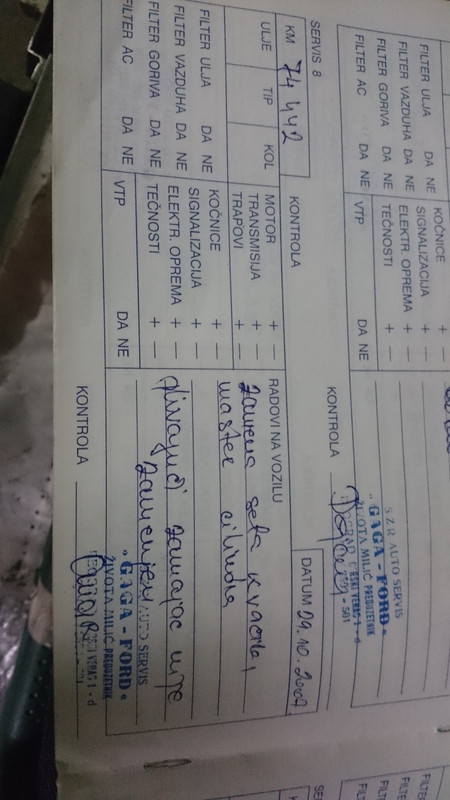 FILTER ULJA DA NE
FILTER VAZDUHA DA NE
FILTER GORIVA DA NE
FILTER AC DA NE
KOČNICE
SIGNALIZACIJA + —
ELEKTR. OPREMA + —
TEČNOSTI + —
VTP DA NE
KONTROLA
SZR AUTO SERVIS
"GAGA - FORD"
ŽIVOTA MILIĆ PREDUZETNIK
SERVIS 8
KM 74 442
KONTROLA
DATUM 29.10.2007.
ULJE TIP KOL
MOTOR + —
TRANSMISIJA + —
TRAPOVI + —
KOČNICE + —
SIGNALIZACIJA + —
ELEKTR. OPREMA + —
TEČNOSTI + —
VTP DA NE
FILTER ULJA DA NE
FILTER VAZDUHA DA NE
FILTER GORIVA DA NE
FILTER AC DA NE
RADOVI NA VOZILU
zamena seta kvačila,
master cilindra
plivajući zamajac nije
zamenjen
AUTO SERVIS
"GAGA - FORD"
ŽIVOTA MILIĆ PREDUZETNIK
VENAC 1 - d
KONTROLA
FILTER ULJA
FILTER VAZDUHA
FILTER GORIVA